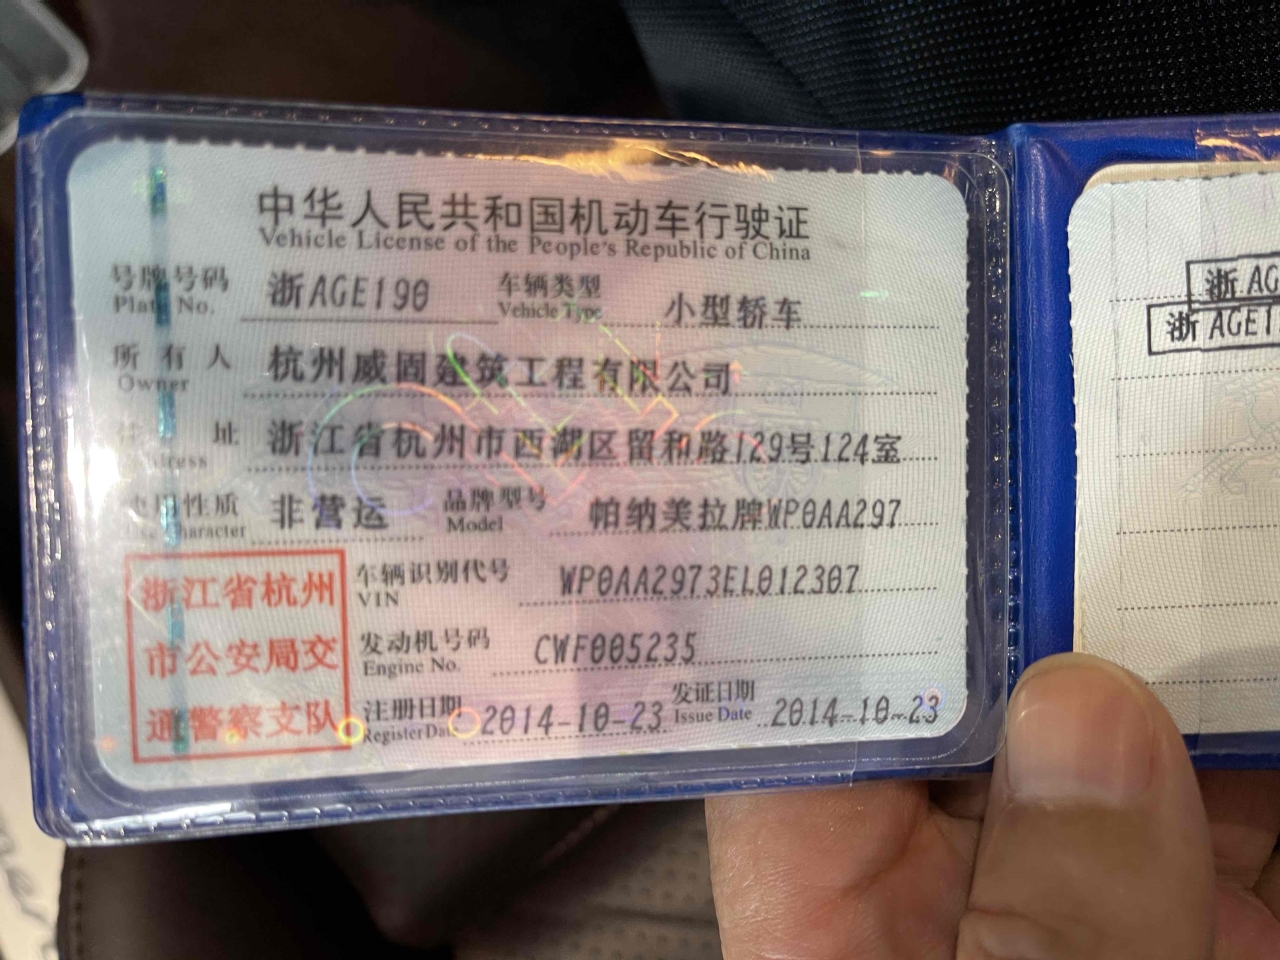 中华人民共和国机动车行驶证
Vehicle License of the People's Republic of China
号牌号码 浙AGE190 车辆类型 小型轿车
Plate No. Vehicle Type
所有人 杭州威固建筑工程有限公司
Owner
住址 浙江省杭州市西湖区留和路129号124室
使用性质 非营运 品牌型号 帕纳美拉牌WP0AA297
Character Model
浙江省杭州
市公安局交
通警察支队
车辆识别代号 WP0AA2973EL012307
VIN
发动机号码 CWF005235
Engine No.
注册日期 2014-10-23 发证日期 2014-10-23
Register Date Issue Date
浙AG
浙AGE1